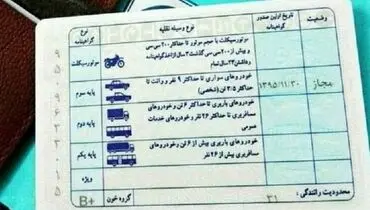 وضعیت
تاریخ اولین صدور
گواهینامه
نوع وسیله نقلیه
نوع
گواهینامه
موتورسیکلت با حجم موتور تا حداکثر ۲۰۰ سی سی
و بیش از ۲۰۰ سی سی گذشت ۳ سال از اخذ گواهینامه
وداشتن ۲۳ سال تمام
موتورسیکلت
مجاز
۱۳۹۵/۱۱/۳۰
خودروهای سواری تا حداکثر ۹ نفر و وانت تا
حداکثر ۳/۵ تن (شخصی)
پایه سوم
خودروهای باربری تا حداکثر ۶ تن و خودروهای
مسافربری تا حداکثر ۲۶ نفر و خودروهای خدمات
عمومی
پایه دوم
خودروهای باربری بیش از ۶ تن و خودروهای
مسافربری بیش از ۲۶ نفر
پایه یکم
ویژه
محدودیت رانندگی :
۳۱
گروه خون
B+